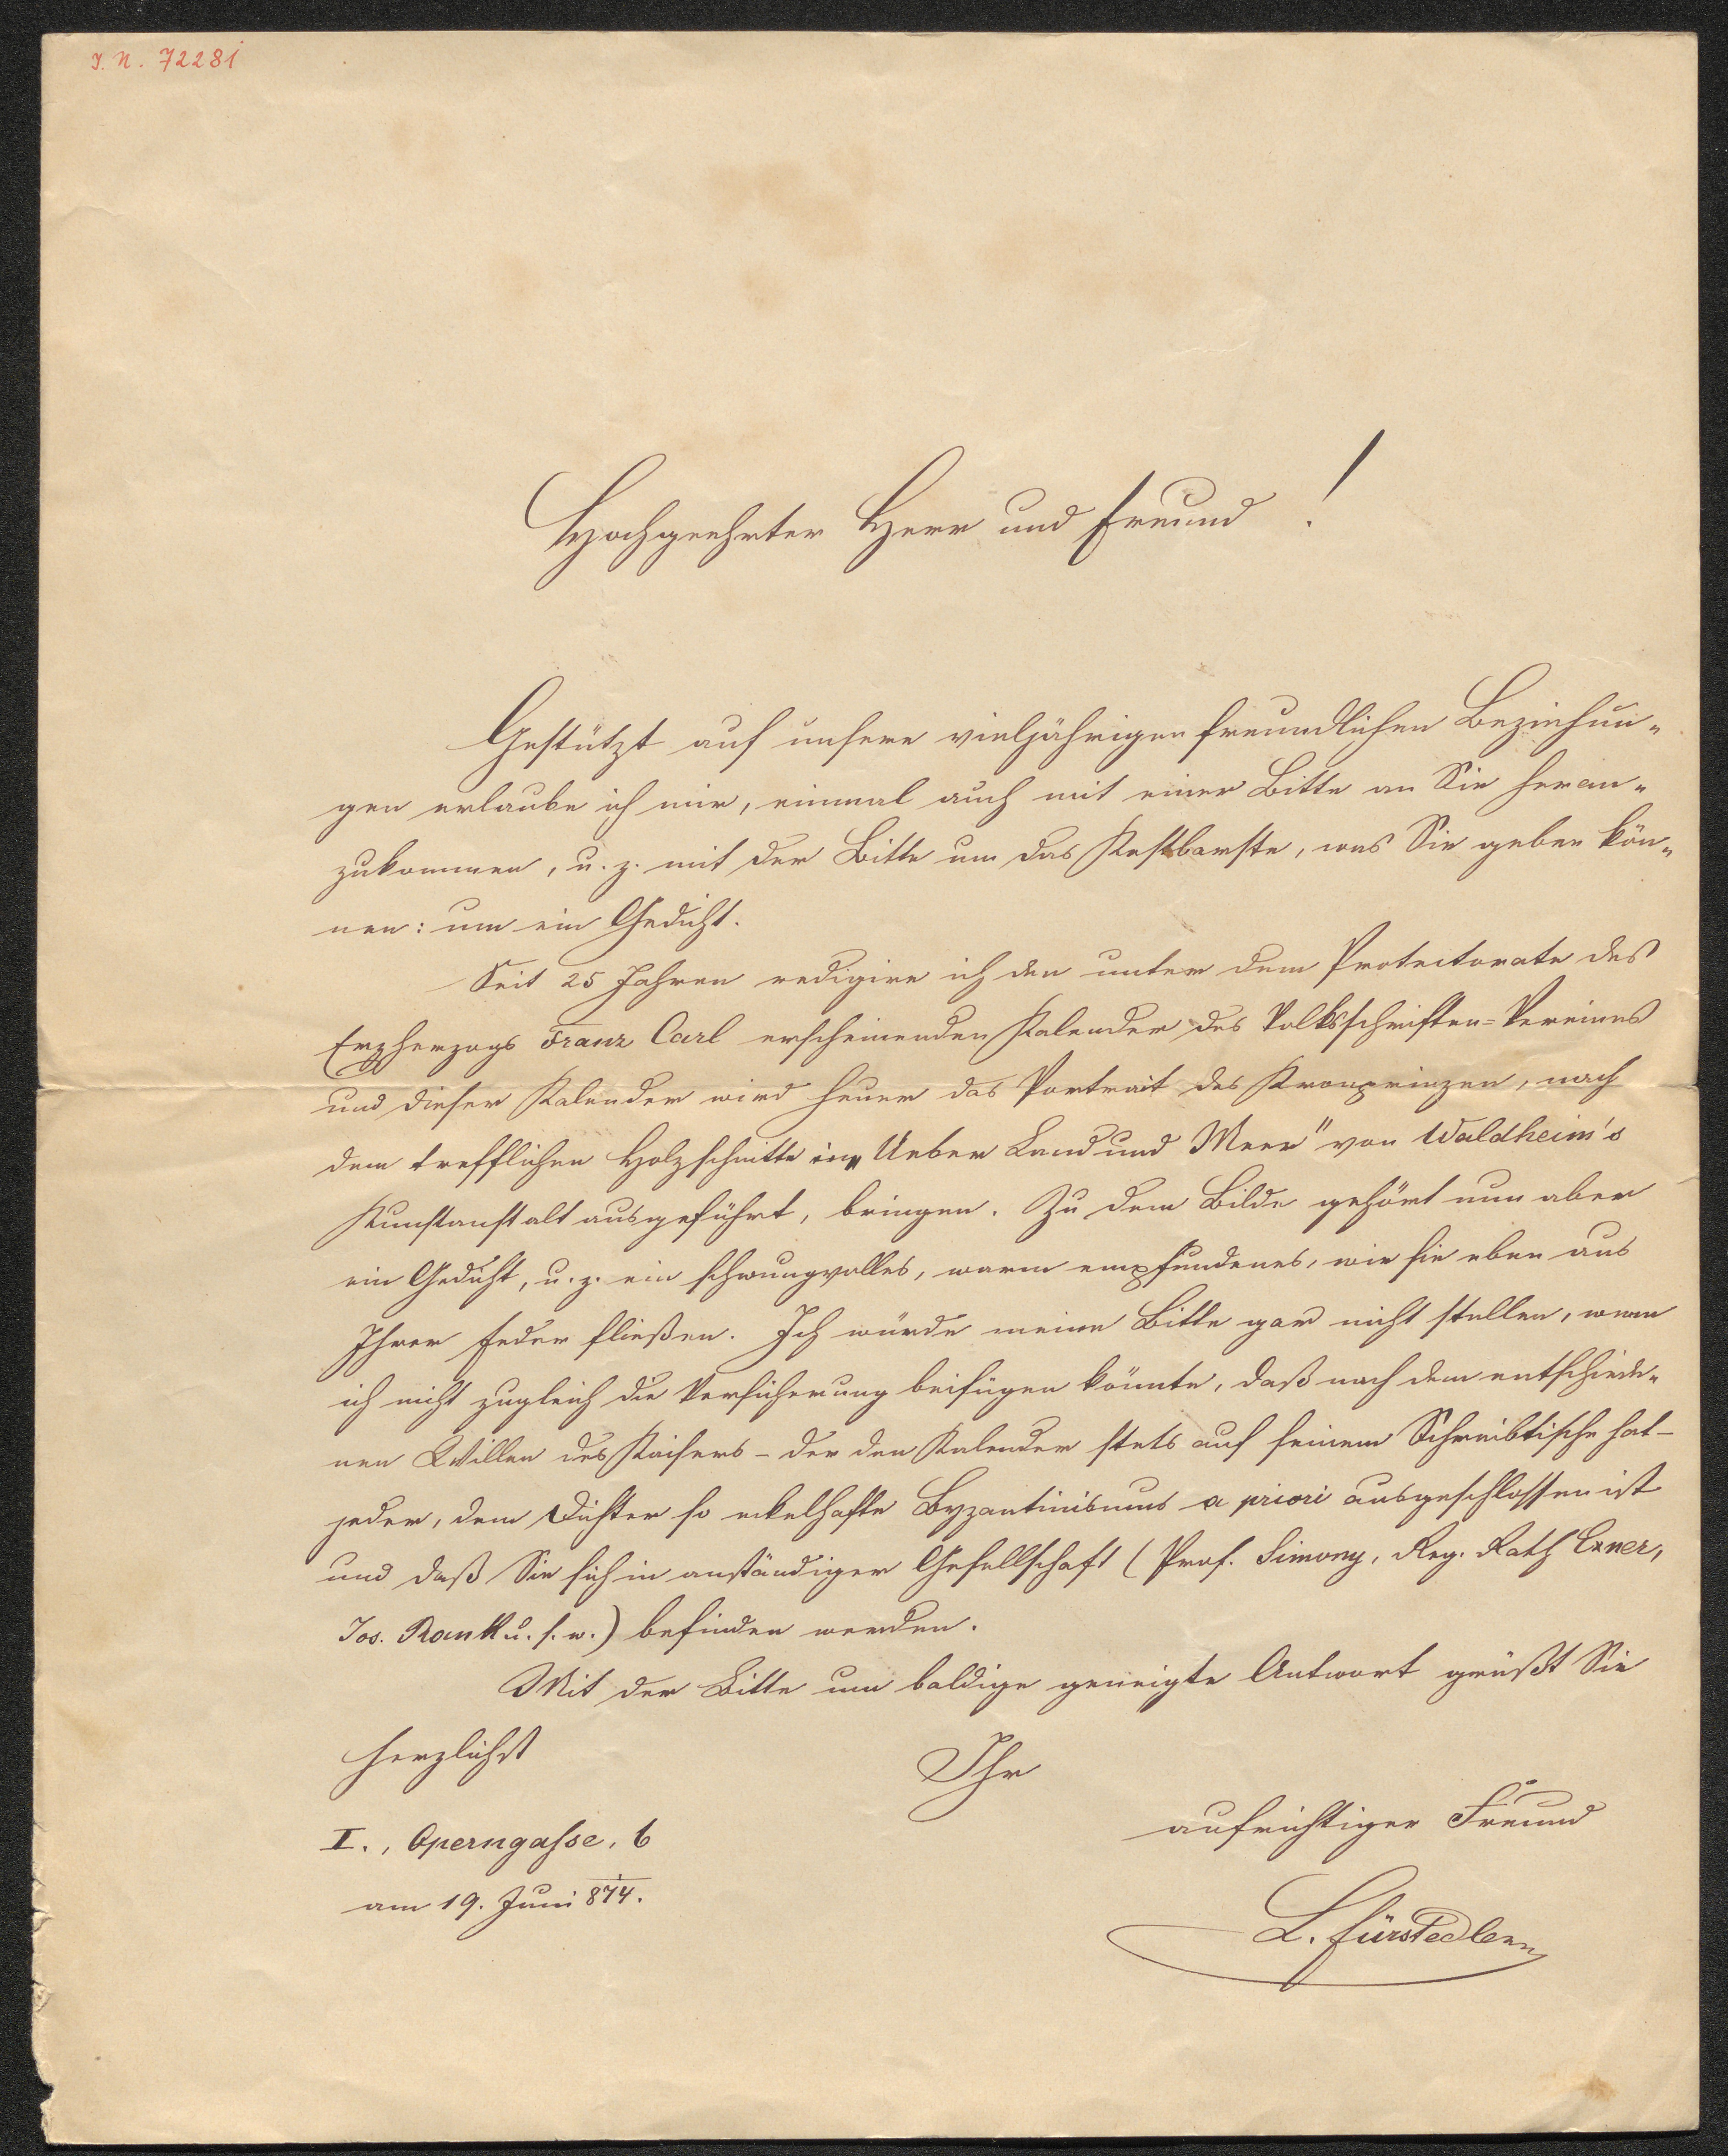 I. N. 72281
Hochgeehrter Herr und Freund!
Gestützt auf unsere vieljährigen freundlichen Beziehun-
gen erlaube ich mir, einmal auch mit einer Bitte an Sie heran-
zukommen, u. z. mit der Bitte um das Kostbarste, was Sie geben kön-
nen: um ein Gedicht.
Seit 25 Jahren redigire ich den unter dem Protectorate des
Erzherzogs Franz Carl erscheinenden Kalender des Volksschriften-Vereines
und dieser Kalender wird heuer das Portrait des Kronprinzen, nach
dem trefflichen Holzschnitte in „Ueber Land und Meer" von Waldheim's
Kunstanstalt ausgeführt, bringen. Zu dem Bilde gehört nun aber
ein Gedicht, u. z. ein schwungvolles, warm empfundenes, wie sie eben aus
Ihrer Feder fließen. Ich würde meine Bitte gar nicht stellen, wenn
ich nicht zugleich die Versicherung beifügen könnte, daß nach dem entschiede-
nen Willen des Kaisers – der den Kalender stets auf seinem Schreibtische hat –
jeder, dem Dichter so eckelhafte Byzantinismus a priori ausgeschlossen ist
und daß Sie sich in anständiger Gesellschaft (Prof. Simony, Reg. Rath Exner,
Jos. Rank u. s. w.) befinden werden.
Mit der Bitte um baldige geneigte Antwort grüßt Sie
herzlichst
Ihr
aufrichtiger Freund
I., Operngasse, 6
am 19. Juni 874.
L. Fürstedlern